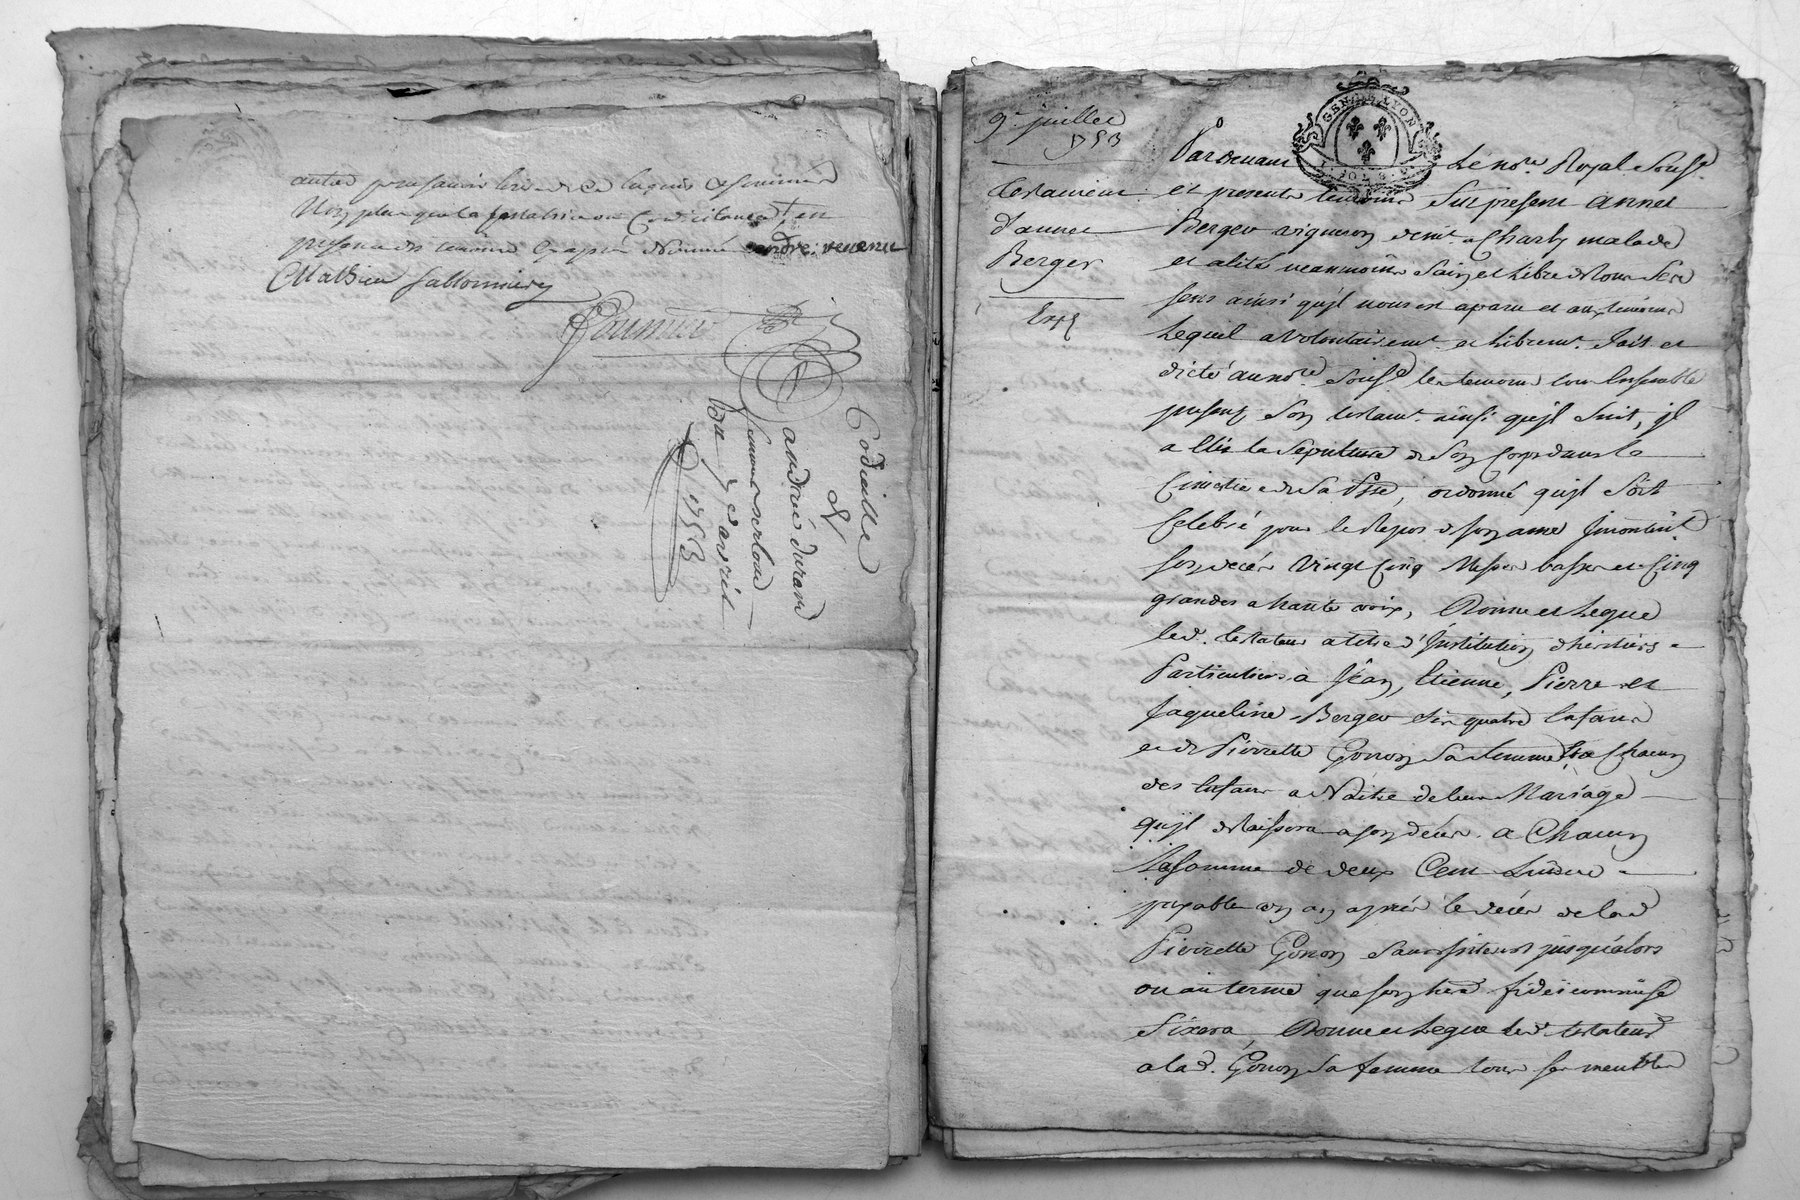 présence des témoins cy après nommé andré venene
Mathieu Sablonniere
Fournier
Codicille
&
andrée durand
femme
du 7e avril
1753
9e juillet
1753
testament
d'annet
Berger
Expé
GEN DE LYON
Pardevant Le nore. Royal Sousé.
et presents temoins Fut present annet
Berger vigneron demt. a Charly malade
et alité neanmoins Sain et Libre de tous Ses
Sens ainsi qu'il nous est aparu et aux temoins
Lequel a volontairemt. et Libremt. fait et
dicté au nore. Sousé. les temoins tous Ensemble
presents Son testamt. ainsi qu'jl Suit, jl
a Elû la Sepulture de Son Corps dans le
Cimetiere de Sa psse, ordonne qu'jl Soit
Celebré pour le Repos de Son ame Jncontint.
Son décés Vingt Cinq Messes basses et Cinq
grandes a haute voix, Donne et Legue
led. testateur a titre d'Jnstitution d'heritiers
Particuliers à Jean, Etienne, Pierre et
Jaqueline Berger Ses quatre Enfans
et de Pierrette Gonon Sa femme Et a Chacun
des Enfans a Naitre de leur Mariage
qu'jl delaissera a son décés. a Chacun
la Somme de deux Cent Livres
payables un an aprés le décés de lad.
Pierrette Gonon Sans interest jusqu'alors
ou au terme que Son hered. fideicommise
fixera, Donne et Legue led. testateur
a lad. Gonon Sa femme tous Ses meubles